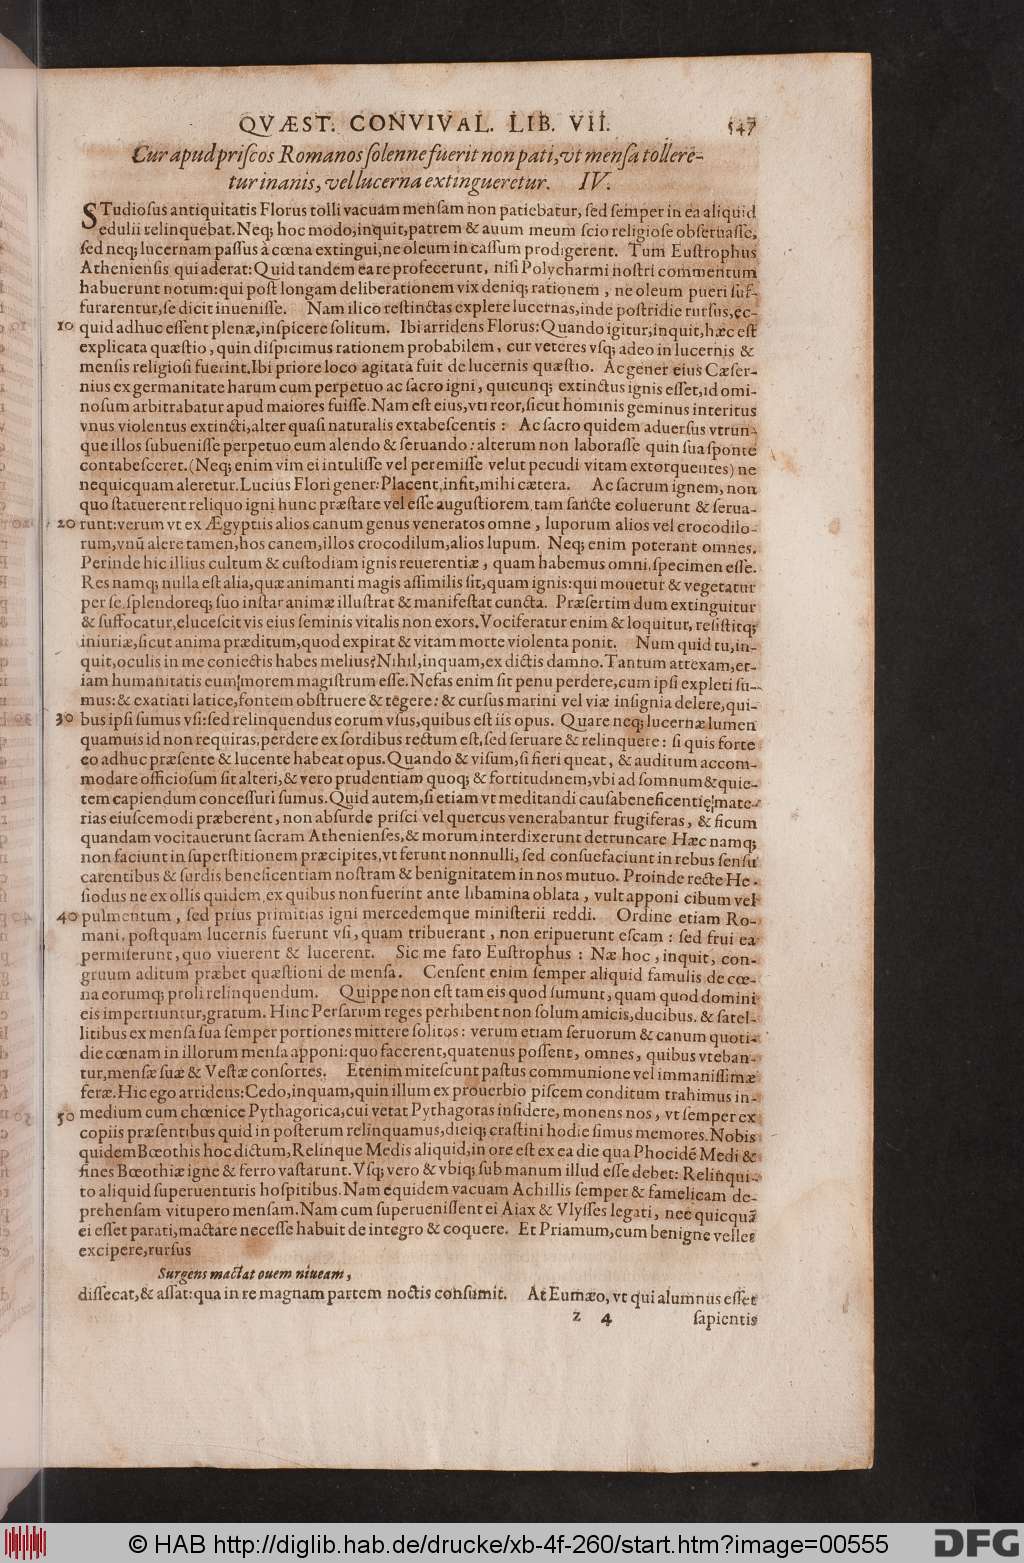 QVÆST. CONVIVAL. LIB. VII. 547
Cur apud priſcos Romanos ſolenne fuerit non pati, vt menſa tollere-
tur inanis, vel lucerna extingueretur. IV.
STudioſus antiquitatis Florus tolli vacuam menſam non patiebatur, ſed ſemper in ea aliquid
edulii relinquebat. Neq; hoc modo, inquit, patrem & auum meum ſcio religioſe obſeruaſſe,
ſed neq; lucernam paſſus à cœna extingui, ne oleum in caſſum prodigerent. Tum Euſtrophus
Athenienſis qui aderat: Quid tandem ea re profecerunt, niſi Polycharmi noſtri commentum
habuerunt notum: qui poſt longam deliberationem vix deniq; rationem, ne oleum pueri ſuf-
furarentur, ſe dicit inueniſſe. Nam ilico reſtinctas explere lucernas, inde poſtridie rurſus, ec-
10 quid adhuc eſſent plenæ, inſpicere ſolitum. Ibi arridens Florus: Quando igitur, inquit, hæc eſt
explicata quæſtio, quin diſpicimus rationem probabilem, cur veteres vſq; adeo in lucernis &
menſis religioſi fuerint. Ibi priore loco agitata fuit de lucernis quæſtio. Ac gener eius Cæſer-
nius ex germanitate harum cum perpetuo ac ſacro igni, quicunq; extinctus ignis eſſet, id omi-
noſum arbitrabatur apud maiores fuiſſe. Nam eſt eius, vti reor, ſicut hominis geminus interitus
vnus violentus extincti, alter quaſi naturalis extabeſcentis: Ac ſacro quidem aduerſus vtrun-
que illos ſubueniſſe perpetuo eum alendo & ſeruando: alterum non laboraſſe quin ſua ſponte
contabeſceret. (Neq; enim vim ei intuliſſe vel peremiſſe velut pecudi vitam extorquentes) ne
nequicquam aleretur. Lucius Flori gener: Placent, infit, mihi cætera. Ac ſacrum ignem, non
quo ſtatuerent reliquo igni hunc præſtare vel eſſe auguſtiorem tam ſancte coluerunt & ſerua-
20 runt: verum vt ex Ægyptiis alios canum genus veneratos omne, luporum alios vel crocodilo-
rum, vnũ alere tamen, hos canem, illos crocodilum, alios lupum. Neq; enim poterant omnes.
Perinde hic illius cultum & cuſtodiam ignis reuerentiæ, quam habemus omni, ſpecimen eſſe.
Res namq; nulla eſt alia, quæ animanti magis aſſimilis ſit, quam ignis: qui mouetur & vegetatur
per ſe, ſplendoreq; ſuo inſtar animæ illuſtrat & manifeſtat cuncta. Præſertim dum extinguitur
& ſuffocatur, eluceſcit vis eius ſeminis vitalis non exors. Vociferatur enim & loquitur, reſiſtitq;
iniuriæ, ſicut anima præditum, quod expirat & vitam morte violenta ponit. Num quid tu, in-
quit, oculis in me coniectis habes melius? Nihil, inquam, ex dictis damno. Tantum attexam, et-
iam humanitatis eum morem magiſtrum eſſe. Nefas enim ſit penu perdere, cum ipſi expleti ſu-
mus: & exatiati latice, fontem obſtruere & tegere: & curſus marini vel viæ inſignia delere, qui-
30 bus ipſi ſumus vſi: ſed relinquendus eorum vſus, quibus eſt iis opus. Quare neq; lucernæ lumen
quamuis id non requiras, perdere ex ſordibus rectum eſt, ſed ſeruare & relinquere: ſi quis forte
eo adhuc præſente & lucente habeat opus. Quando & viſum, ſi fieri queat, & auditum accom-
modare officioſum ſit alteri, & vero prudentiam quoq; & fortitudinem, vbi ad ſomnum & quie-
tem capiendum conceſſuri ſumus. Quid autem, ſi etiam vt meditandi cauſa beneficentię mate-
rias eiuſcemodi præberent, non abſurde priſci vel quercus venerabantur frugiferas, & ficum
quandam vocitauerunt ſacram Athenienſes, & morum interdixerunt detruncare Hæc namq;
non faciunt in ſuperſtitionem præcipites, vt ferunt nonnulli, ſed conſuefaciunt in rebus ſenſu
carentibus & ſurdis beneficentiam noſtram & benignitatem in nos mutuo. Proinde recte He-
ſiodus ne ex ollis quidem, ex quibus non fuerint ante libamina oblata, vult apponi cibum vel
40 pulmentum, ſed prius primitias igni mercedemque miniſterii reddi. Ordine etiam Ro-
mani, poſtquam lucernis fuerunt vſi, quam tribuerant, non eripuerunt eſcam: ſed frui ea
permiſerunt, quo viuerent & lucerent. Sic me fato Euſtrophus: Næ hoc, inquit, con-
gruum aditum præbet quæſtioni de menſa. Cenſent enim ſemper aliquid famulis de cœ-
na eorumq; proli relinquendum. Quippe non eſt tam eis quod ſumunt, quam quod domini
eis impertiuntur, gratum. Hinc Perſarum reges perhibent non ſolum amicis, ducibus. & ſatel-
litibus ex menſa ſua ſemper portiones mittere ſolitos: verum etiam ſeruorum & canum quoti-
die cœnam in illorum menſa apponi: quo facerent, quatenus poſſent, omnes, quibus vteban-
tur, menſæ ſuæ & Veſtæ conſortes. Etenim miteſcunt paſtus communione vel immaniſſimæ
feræ. Hic ego arridens: Cedo, inquam, quin illum ex prouerbio piſcem conditum trahimus in-
50 medium cum chœnice Pythagorica, cui vetat Pythagoras inſidere, monens nos, vt ſemper ex
copiis præſentibus quid in poſterum relinquamus, dieiq; craſtini hodie ſimus memores. Nobis
quidem Bœothis hoc dictum, Relinque Medis aliquid, in ore eſt ex ea die qua Phocidẽ Medi &
fines Bœothiæ igne & ferro vaſtarunt. Vſq; vero & vbiq; ſub manum illud eſſe debet: Relinqui-
to aliquid ſuperuenturis hoſpitibus. Nam equidem vacuam Achillis ſemper & famelicam de-
prehenſam vitupero menſam. Nam cum ſuperueniſſent ei Aiax & Vlyſſes legati, nec quicquã
ei eſſet parati, mactare neceſſe habuit de integro & coquere. Et Priamum, cum benigne vellet
excipere, rurſus
Surgens mactat ouem niueam,
diſſecat, & aſſat: qua in re magnam partem noctis conſumit. At Eumæo, vt qui alumnus eſſet
z 4 ſapientis
© HAB http://diglib.hab.de/drucke/xb-4f-260/start.htm?image=00555 DFG